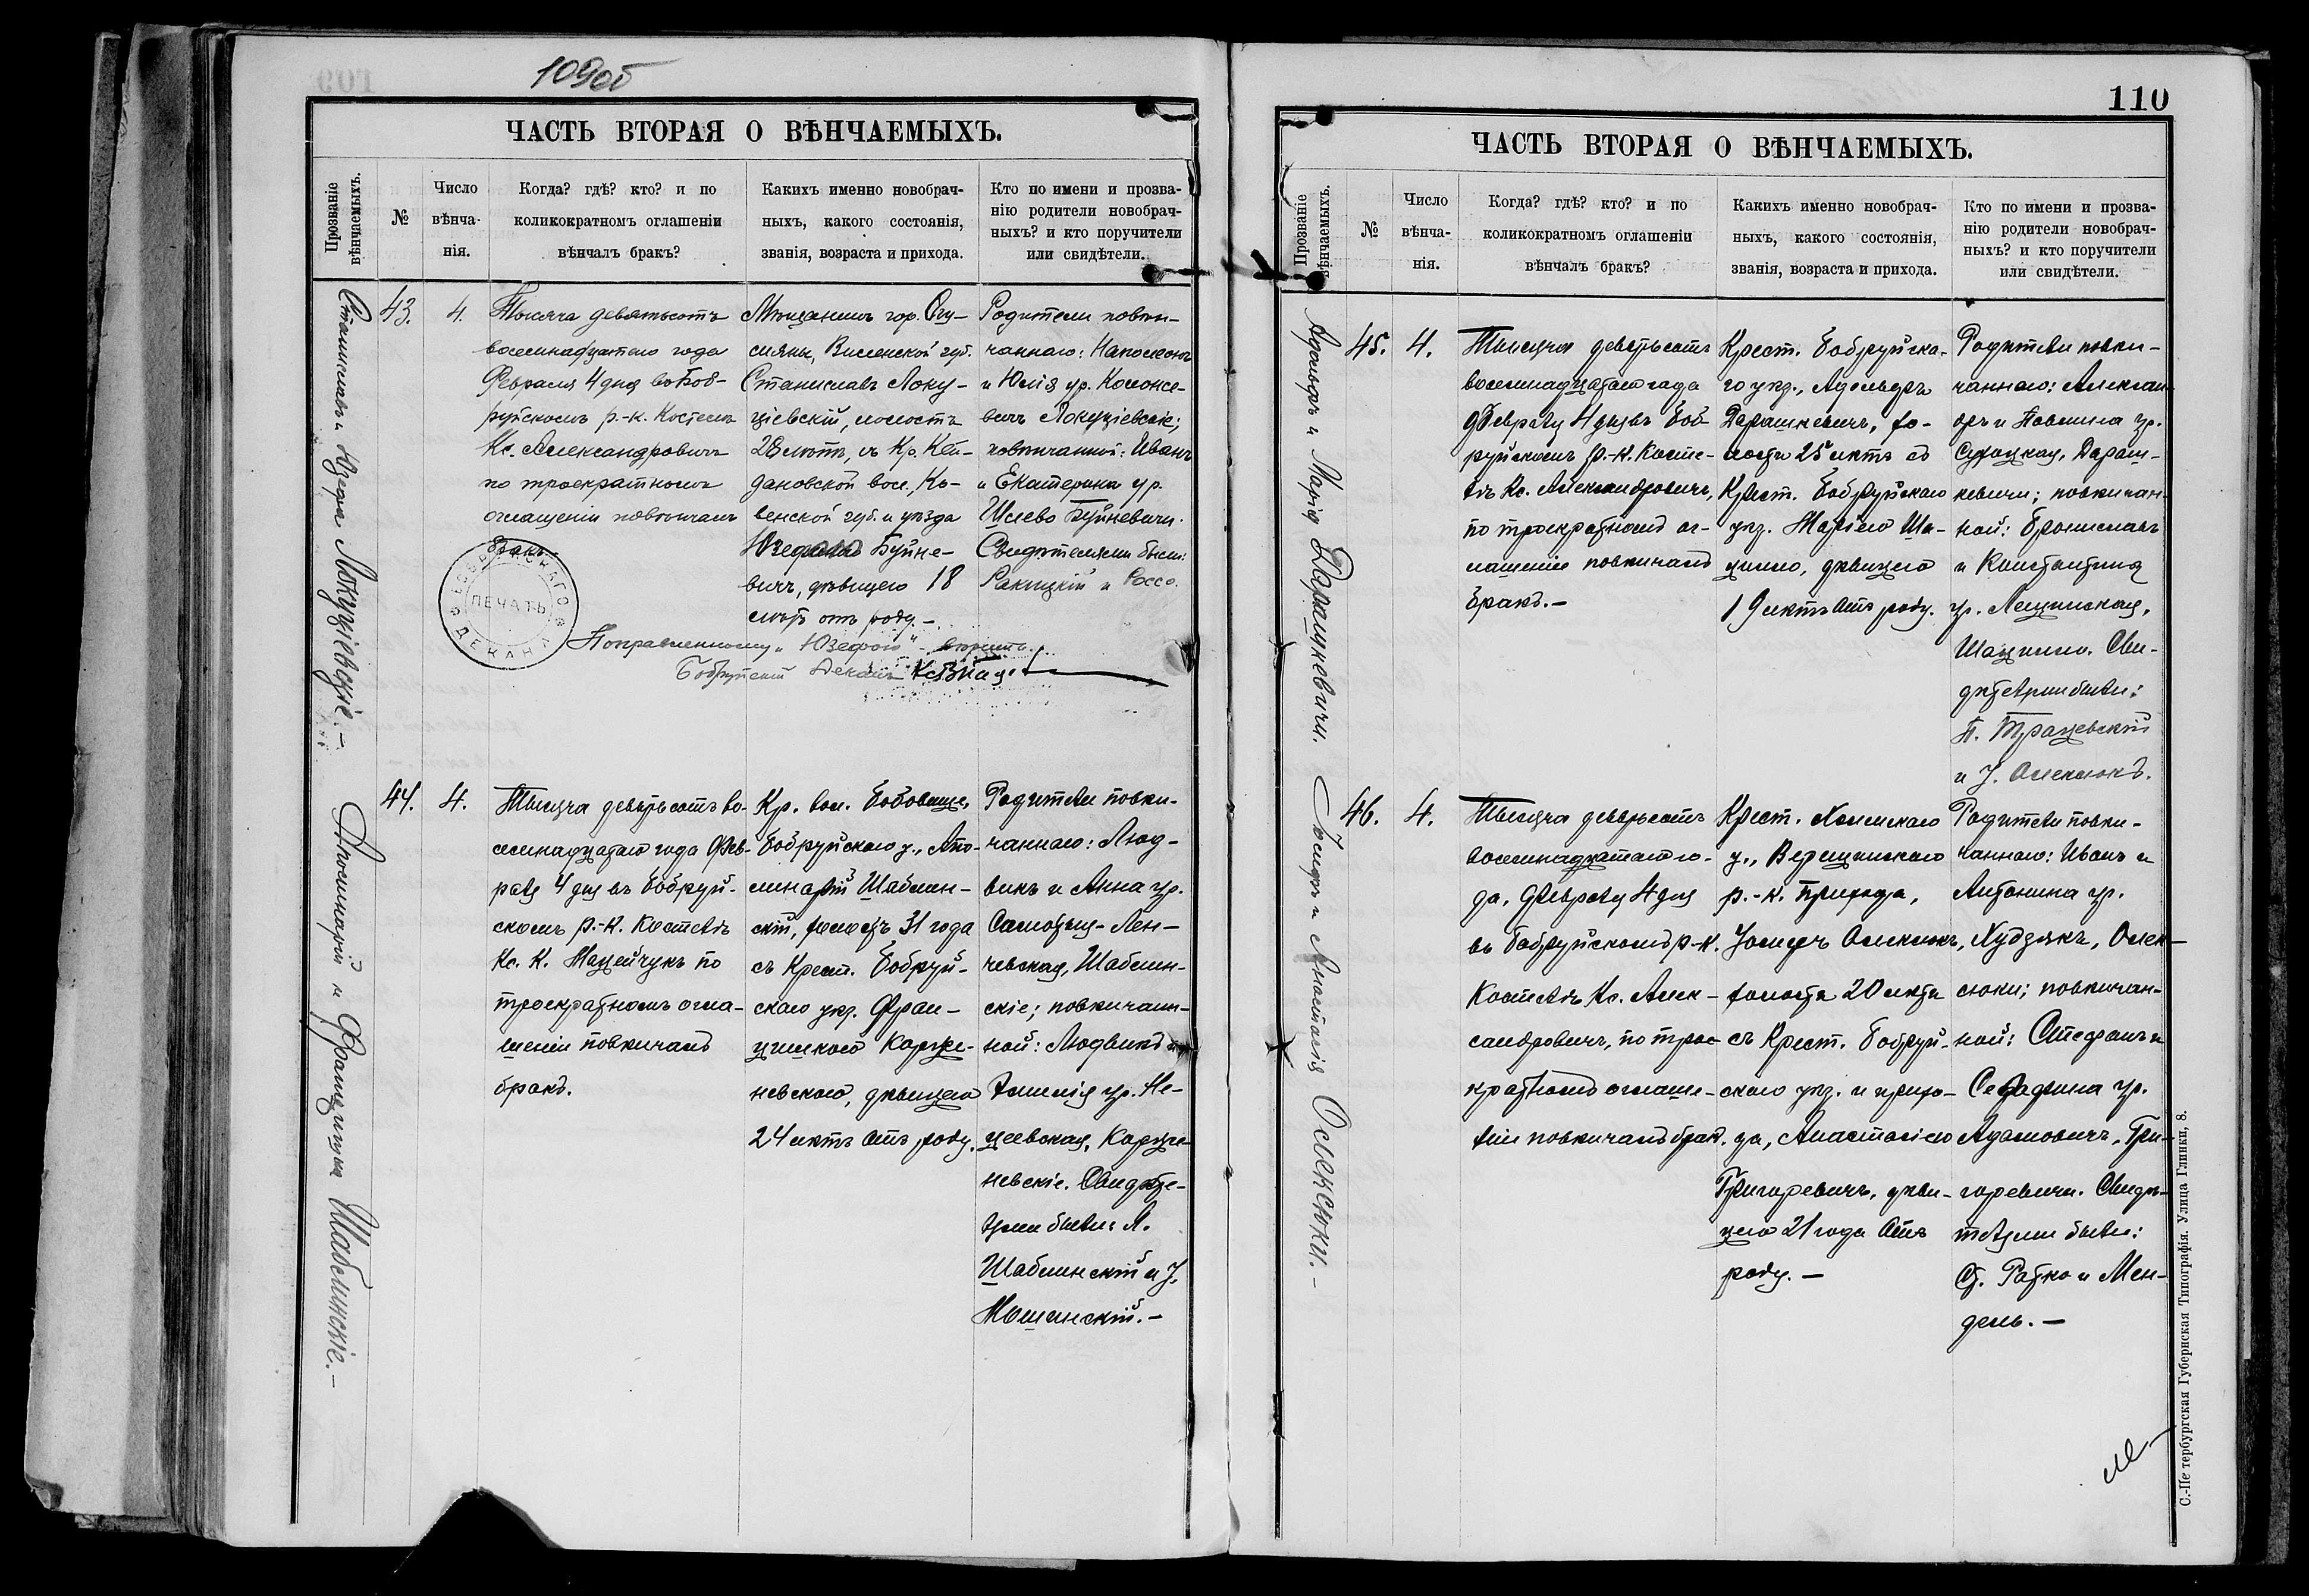 109об
ЧАСТЬ ВТОРАЯ О ВѢНЧАЕМЫХЪ.
Прозваніе вѣнчаемыхъ.
№
Число вѣнча-
нія.
Когда? гдѣ? кто? и по
коликократномъ оглашеніи
вѣнчалъ бракъ?
Какихъ именно новобрач-
ныхъ, какого состоянія,
званія, возраста и прихода.
Кто по имени и прозва-
нію родители новобрач-
ныхъ? и кто поручители
или свидѣтели.
Станиславъ и Юзефа Локуціевскіе.-
43.
4.
Тысяча девятьсотъ
восемнадцатаго года
Февраля 4 дня въ Боб-
руйскомъ р.-к. Костелѣ
Кс. Александровичъ
по троекратномъ
оглашеніи повѣнчалъ
бракъ.
Мѣщанинъ гор.
сияны, Виленской губ.
Станиславъ Локу-
ціевскій, холостъ
28 лѣтъ, съ Кр. Кей-
дановской вол., Ко-
венской губ. и уѣзда
Юзефою Буйне-
вичъ, дѣвицею 18
лѣтъ отъ роду.-
Родители повѣн-
чаннаго: Наполеонъ
и Юлія ур.
вичъ Локуціевскіе;
повѣнчанной: Иванъ
и Екатерина ур.
Шлево Буйневичи.
Свидѣтелями были:
Ракицкій и Россо.
БОБРУЙСКАГО ДЕКАНА
ПЕЧАТЬ
Поправленному "Юзефою" - вѣрить.
Бобруйскій Деканъ Кс.
Аполинарій и Францишка Шаблинскіе.-
44.
4.
Тысяча девятьсотъ во-
семнадцатаго года Фев-
раля 4 дня въ Бобруй-
скомъ р.-к. Костелѣ
Кс. К. Мацейчукъ по
троекратномъ огла-
шеніи повѣнчалъ
бракъ.
Кр. вол.
Бобруйскаго у., Апо-
линарій Шаблин-
скій, холостъ 31 года
съ Крест. Бобруй-
скаго уѣз. Фран-
цишкою Корже-
невскою, дѣвицею
24 лѣтъ отъ роду.
Родители повѣн-
чаннаго: Люд-
викъ и Анна ур.
Лен-
чевская, Шаблин-
скіе; повѣнчан-
ной: Людвикъ и
Эмилія ур. Не-
цеевская, Корже-
невскіе. Свидѣте-
лями были: Л.
Шаблинскій и І.
Мошинскій.-
110
ЧАСТЬ ВТОРАЯ О ВѢНЧАЕМЫХЪ.
Прозваніе вѣнчаемыхъ.
№
Число вѣнча-
нія.
Когда? гдѣ? кто? и по
коликократномъ оглашеніи
вѣнчалъ бракъ?
Какихъ именно новобрач-
ныхъ, какого состоянія,
званія, возраста и прихода.
Кто по имени и прозва-
нію родители новобрач-
ныхъ? и кто поручители
или свидѣтели.
Адольфъ и Марія Дарашкевичи.
45.
4.
Тысяча девятьсотъ
восемнадцатаго года
Февраля 4 дня въ Боб-
руйскомъ р.-к. Косте-
лѣ Кс. Александровичъ,
по троекратномъ ог-
лашеніи повѣнчалъ
бракъ.-
Крест. Бобруйска-
го уѣз., Адольфъ
Дарашкевичъ, хо-
лостъ 25 лѣтъ съ
Крест. Бобруйскаго
уѣз. Маріею Ша-
цилло, дѣвицею
19 лѣтъ отъ роду.
Родители повѣн-
чаннаго: Александ-
ръ и Павлина ур.
Сухоцкая, Дараш-
кевичи; повѣнчан-
ной: Брониславъ
и Константина
ур. Лещинская,
Шацилло. Сви-
дѣтелями были:
П. Трацевскій
и І. Олексюкъ.
Іосифъ и Анастасія Олексюки.-
46.
4.
Тысяча девятьсотъ
восемнадцатаго го-
да, Февраля 4 дня
въ Бобруйскомъ р-к.
Костелѣ Кс. Алек-
сандровичъ, по трое-
кратномъ оглаше-
ніи повѣнчалъ брак.
Крест. Холмскаго
у., Верещинскаго
р.-к. прихода,
Іосифъ Олексюкъ,
холостъ 20 лѣтъ
съ Крест. Бобруй-
скаго уѣз. и прихо-
да, Анастасіею
Григоревичъ, дѣви-
цею 21 года отъ
роду.-
Родители повѣн-
чаннаго: Иванъ и
Антонина ур.
Худзякъ, Олек-
сюки; повѣнчан-
ной: Стефанъ и
Серафина ур.
Адамовичъ, Гри-
горевичи. Свидѣ-
телями были:
Ратко и Мен-
дель.-
С.-Петербургская Губернская Типографія. Улица Глинки, 8.